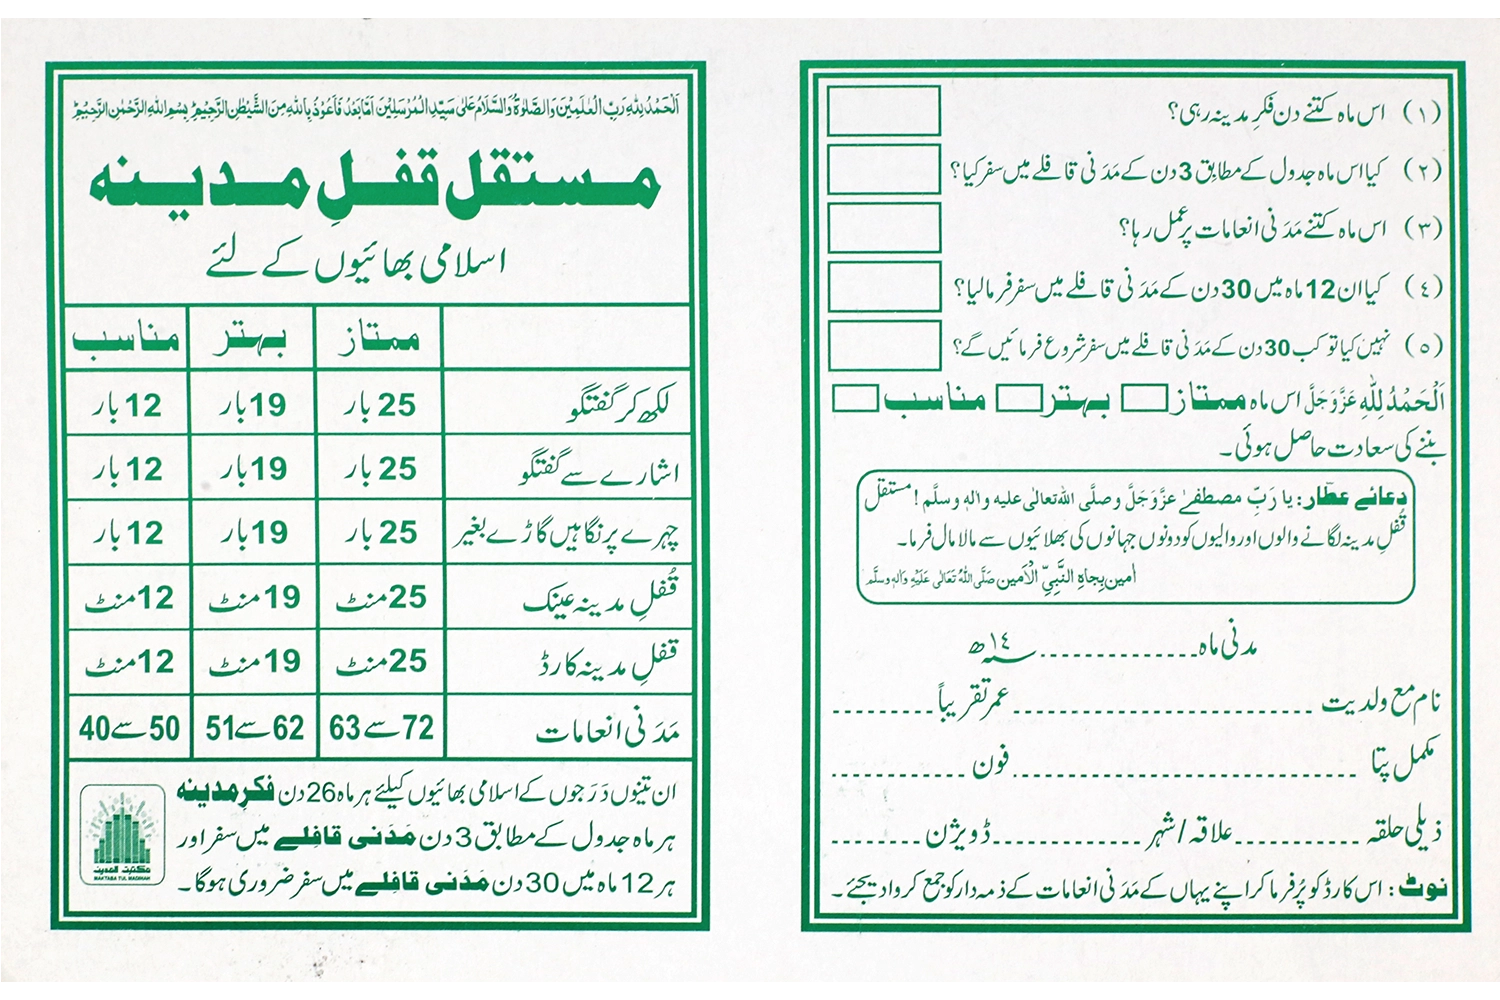 اَلْحَمْدُ لِلّٰهِ رَبِّ الْعٰلَمِيْنَ وَالصَّلٰوةُ وَالسَّلَامُ عَلٰى سَيِّدِ الْمُرْسَلِيْنَ اَمَّا بَعْدُ فَاَعُوْذُ بِاللّٰهِ مِنَ الشَّيْطٰنِ الرَّجِيْمِ بِسْمِ اللّٰهِ الرَّحْمٰنِ الرَّحِيْمِ
مستقل قفلِ مدینہ
اسلامی بھائیوں کے لئے
ممتاز بہتر مناسب
لکھ کر گفتگو 25 بار 19 بار 12 بار
اشارے سے گفتگو 25 بار 19 بار 12 بار
چہرے پر نگاہیں گاڑے بغیر 25 بار 19 بار 12 بار
قُفلِ مدینہ عینک 25 منٹ 19 منٹ 12 منٹ
قفلِ مدینہ کارڈ 25 منٹ 19 منٹ 12 منٹ
مَدَنی انعامات 72 سے 63 62 سے 51 50 سے 40
ان تینوں دَرَجوں کے اسلامی بھائیوں کیلئے ہر ماہ 26 دن فکرِ مدینہ
ہر ماہ جدول کے مطابق 3 دن مَدَنی قافِلے میں سفر اور
ہر 12 ماہ میں 30 دن مَدَنی قافِلے میں سفر ضروری ہوگا۔
مکتبۃ المدینہ
MAKTABA TUL MADINAH
(۱) اس ماہ کتنے دن فکرِ مدینہ رہی؟
(۲) کیا اس ماہ جدول کے مطابِق 3 دن کے مَدَنی قافلے میں سفر کیا؟
(۳) اس ماہ کتنے مَدَنی انعامات پر عمل رہا؟
(٤) کیا ان 12 ماہ میں 30 دن کے مَدَنی قافلے میں سفر فرما لیا؟
(٥) نہیں کیا تو کب 30 دن کے مَدَنی قافلے میں سفر شروع فرمائیں گے؟
اَلْحَمْدُ لِلّٰهِ عَزَّوَجَلَّ اس ماہ ممتاز بہتر مناسب
بننے کی سعادت حاصل ہوئی۔
دعائے عطّار: یا رَبِّ مصطفےٰ عَزَّوَجَلَّ وصلَّی اللہ تعالٰی علیہ واٰلہٖ وسلَّم! مستقل
قُفلِ مدینہ لگانے والوں اور والیوں کو دونوں جہانوں کی بھلائیوں سے مالا مال فرما۔
اٰمین بِجاہِ النَّبِیِّ الْاَمین صَلَّی اللہُ تَعَالٰی عَلَیْہِ وَاٰلِہٖ وَسلَّم
مدنی ماہ............. ۱٤ھ
نام مع ولدیت ............................ عمر تقریباً ..........
مکمل پتا ............................ فون .............
ذیلی حلقہ ............. علاقہ / شہر .............. ڈویژن .........
نوٹ: اس کارڈ کو پُر فرما کر اپنے یہاں کے مَدَنی انعامات کے ذمہ دار کو جمع کروا دیجئے۔